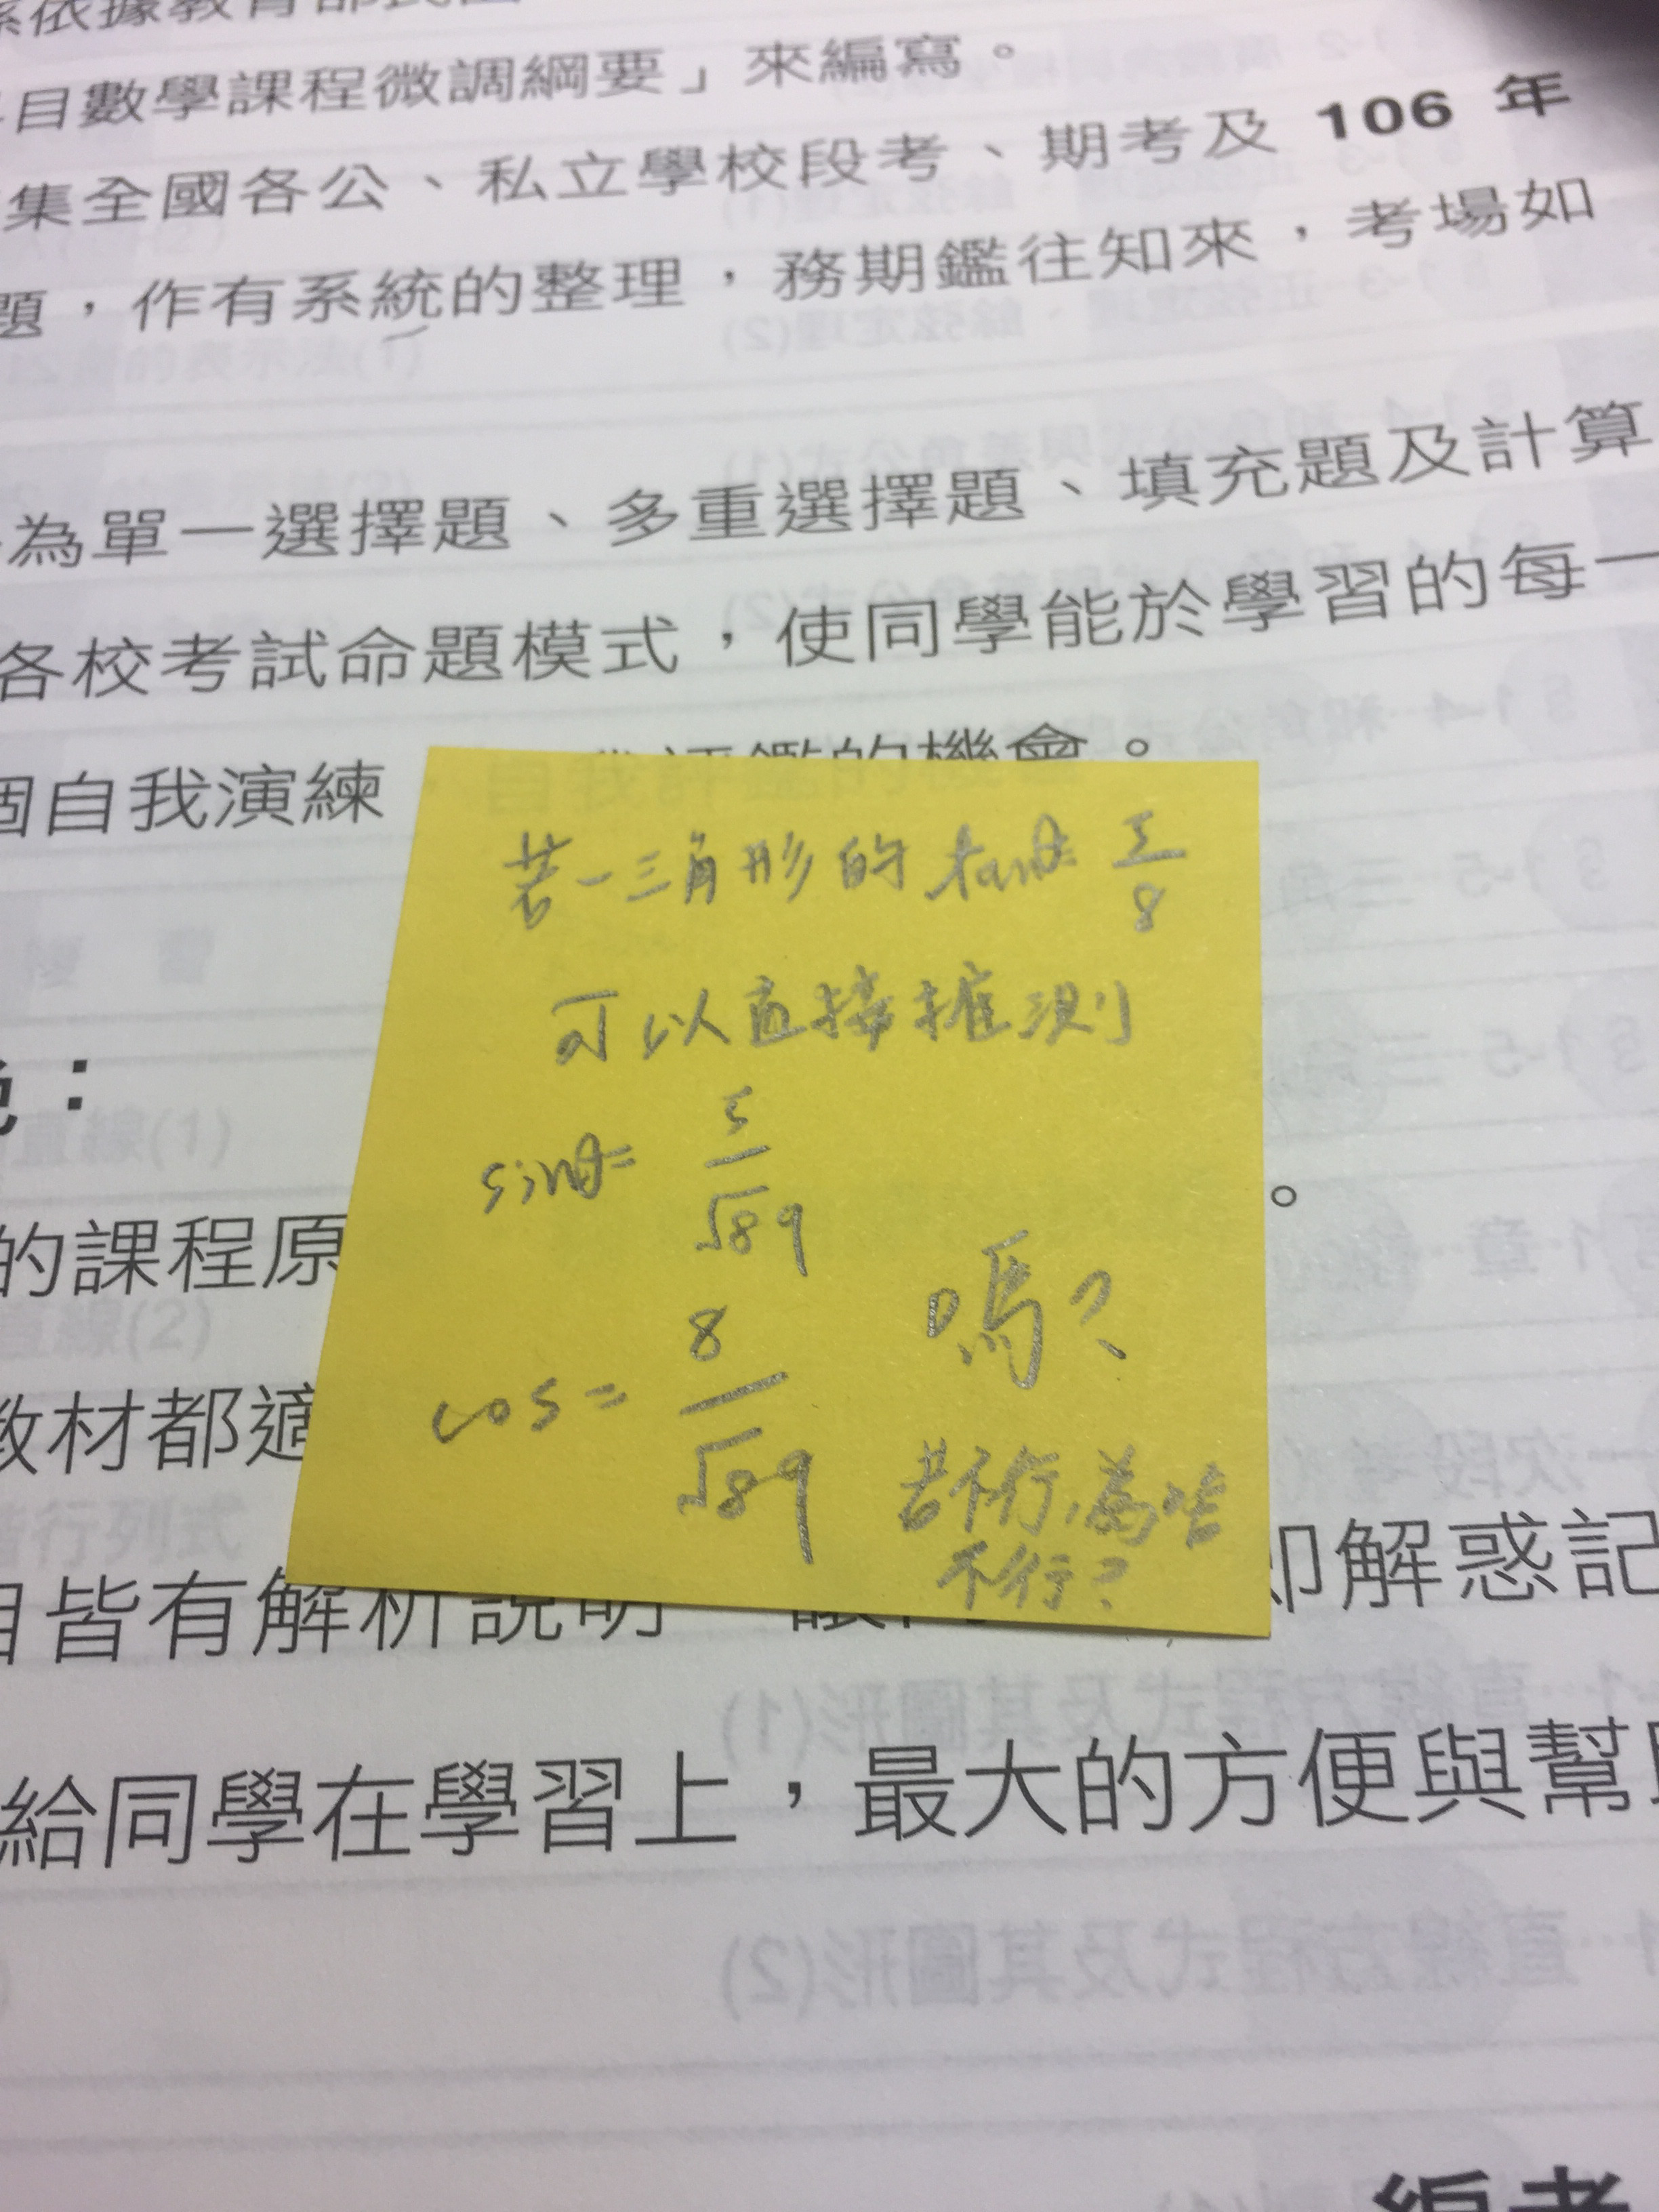 係依據教育部
目數學課程微調綱要」來編寫。
集全國各公、私立學校段考、期考及 106 年
題，作有系統的整理，務期鑑往知來，考場如
為單一選擇題、多重選擇題、填充題及計算
各校考試命題模式，使同學能於學習的每一
個自我演練 自我評鑑的機會。
若一三角形的 tanθ= 5/8
可以直接推測
sinθ= 5/√89
cos = 8/√89
嗎?
若不行,為啥
不行?
：
的課程原 。
教材都適
目皆有解析說明 即解惑記
給同學在學習上，最大的方便與幫助
編者